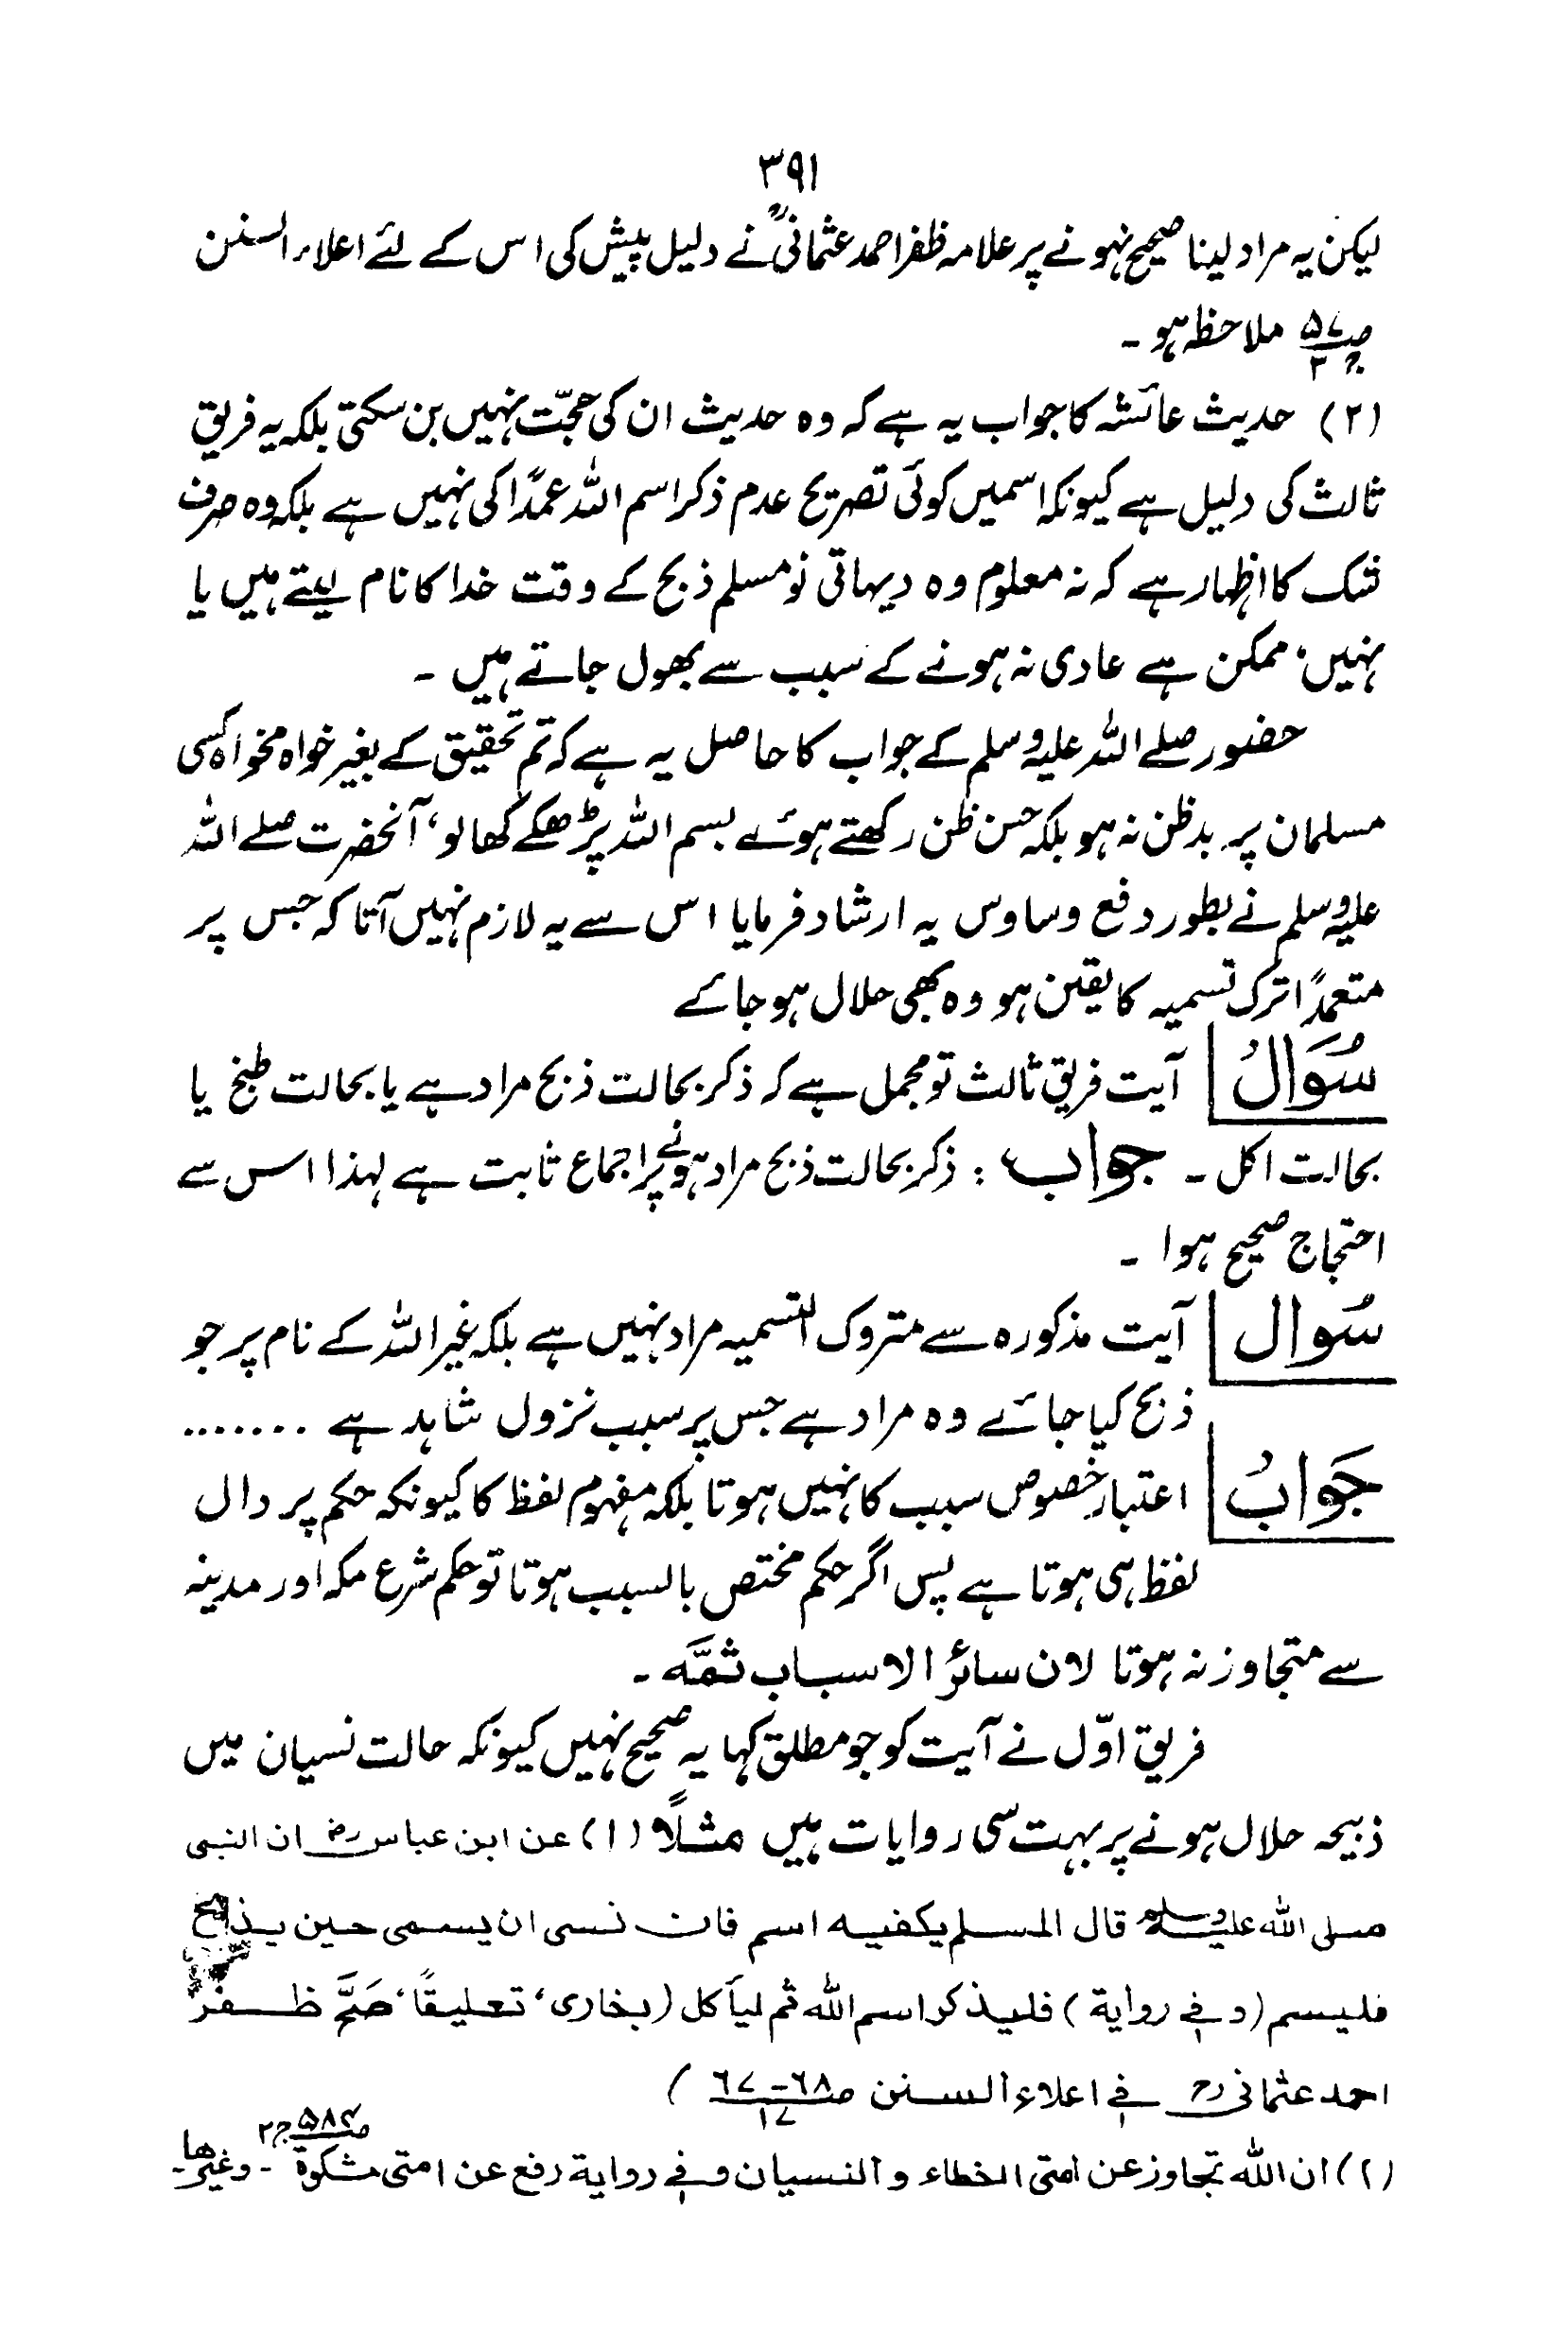 ۳۹۱
لیکن یہ مراد لینا صحیح نہونے پر علامہ ظفر احمد عثمانیؒ نے دلیل پیش کی اس کے لئے اعلاء السنن
ص۵۷ ج۲ ملاحظہ ہو ۔
(۲) حدیث عائشہ کا جواب یہ ہے کہ وہ حدیث ان کی حجّت نہیں بن سکتی بلکہ یہ فریق
ثالث کی دلیل ہے کیونکہ اسمیں کوئی تصریح عدم ذکر اسم اللہ عمدًا کی نہیں ہے بلکہ وہ صرف
شک کا اظہار ہے کہ نہ معلوم وہ دیہاتی نو مسلم ذبح کے وقت خدا کا نام لیتے ہیں یا
نہیں، ممکن ہے عادی نہ ہونے کے سبب سے بھول جاتے ہیں ۔
حضور صلے اللہ علیہ وسلم کے جواب کا حاصل یہ ہے کہ تم تحقیق کے بغیر خواہ مخواہ کسی
مسلمان پر بدظن نہ ہو بلکہ حسن ظن رکھتے ہوئے بسم اللہ پڑھکے کھالو، آنحضرت صلے اللہ
علیہ وسلم نے بطور دفع وساوس یہ ارشاد فرمایا اس سے یہ لازم نہیں آتا کہ جس پر
متعمدًا ترک تسمیہ کا یقین ہو وہ بھی حلال ہو جائے
سُوَالُ آیت فریق ثالث تو مجمل ہے کہ ذکر بحالت ذبح مراد ہے یا بحالت طبخ یا
بحالت اکل ۔ جواب : ذکر بحالت ذبح مراد ہونے پر اجماع ثابت ہے لہذا اس سے
احتجاج صحیح ہوا ۔
سُوال آیت مذکورہ سے متروک التسمیہ مراد نہیں ہے بلکہ غیر اللہ کے نام پر جو
ذبح کیا جائے وہ مراد ہے جس پر سبب نزول شاہد ہے .......
جَوابُ اعتبار خصوص سبب کا نہیں ہوتا بلکہ مفہوم لفظ کا کیونکہ حکم پر دال
لفظ ہی ہوتا ہے پس اگر حکم مختص بالسبب ہوتا تو حکم شرع مکہ اور مدینہ
سے متجاوز نہ ہوتا لان سائر الاسباب ثمَّہ ۔
فریق اوّل نے آیت کو جو مطلق کہا یہ صحیح نہیں کیونکہ حالت نسیان میں
ذبیحہ حلال ہونے پر بہت سی روایات ہیں مثلًا (۱) عن ابن عباس رض ان النبی
صلی اللہ علیہ وسلم قال المسلم یکفیہ اسم فان نسی ان یسمی حین یذبح
فلیسم (وفی روایة) فلیذکر اسم اللہ ثم لیأکل (بخاری، تعلیقًا، صَحَّ ظفر
احمد عثمانی رح فی اعلاء السنن ص۶۸-۶۷ ج۱۷)
(۲) ان اللہ تجاوز عن امتی الخطاء والنسیان وفی روایة رفع عن امتی مشکوة ص۵۸۴ ج۲ ۔ وغیرھا۔